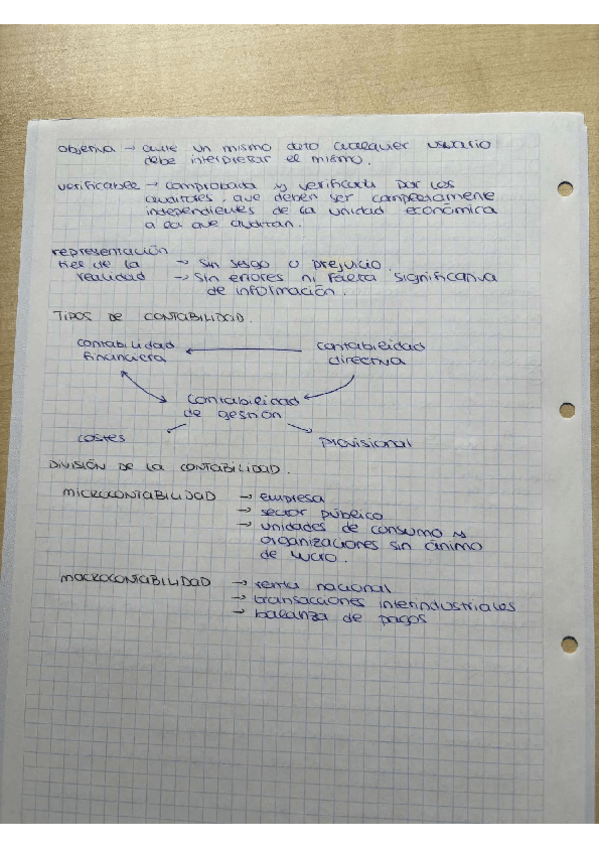 objetiva → ante un mismo dato cualquier usuario
debe interpretar el mismo.
verificable → comprobada y verificada por los
auditores, que deben ser completamente
independientes de la unidad económica
a la que auditan.
representación
fiel de la → sin sesgo o prejuicio.
realidad → Sin errores ni falta significativa
de información.
TIPOS DE CONTABILIDAD.
contabilidad contabilidad
financiera directiva
contabilidad
de gestión
costes provisional
DIVISIÓN DE LA CONTABILIDAD.
MICROCONTABILIDAD → empresa
→ sector público
→ unidades de consumo y
organizaciones sin ánimo
de lucro.
MACROCONTABILIDAD → renta nacional
→ transacciones interindustriales
→ balanza de pagos